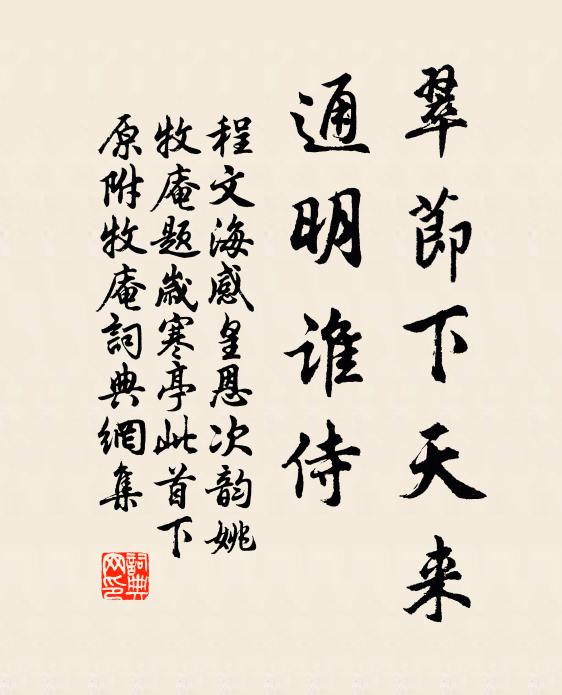 翠節下天来
通明谁侍
程文海感皇恩次韵姚
牧庵题歲寒亭此首下
原附牧庵詞典網集
詞典网印